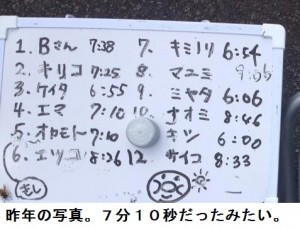 1. Bさん 7:38 7. キミノリ 6:54
2. キリコ 7:25 8. マユミ
3. ケイタ 6:55 9. ミヤタ 6:06
4. エマ 7:10 10 ナオミ 8:46
5. オヤモト 7:10 キツ 6:00
6. エツコ 8:26 12 サイコ 8:33
昨年の写真。7分10秒だったみたい。